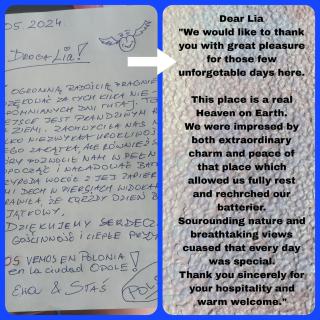 05.2024.
DROGA LIA!
OGROMNĄ RADOŚCIĄ PRAGNIE
ZIĘKOWAĆ ZA TYCH KILKA NIE
POMNIANYCH DNI TUTAJ. TO
EJSCE JEST PRAWDZIWYM R
ZIEMI. ZACHWYCIŁA NAS N
LKO NIEZWYKŁA UROKLIWOŚ
EGO ZAKĄTKA, ALE RÓWNIEŻ S
ÓRY POZWOLIŁ NAM W PEŁN
OPOCZĄĆ I NAŁADOWAĆ BAT
YRODA WOKÓŁ Z JEJ ZAPIER
MI DECH W PIERSIACH WIDOKAM
RAWIŁA, ŻE KAŻDY DZIEŃ B
JĄTKOWY.
DZIĘKUJEMY SERDECZ
GOŚCINNOŚĆ I CIEPŁE PRZYJ
OS VEMOS EN POLONIA
en la ciudad OPOLE!
EWA & STAŚ
Dear Lia
"We would like to thank
you with great pleasure
for those few
unforgetable days here.
This place is a real
Heaven on Earth.
We were impresed by
both extraordinary
charm and peace of
that place which
allowed us fully rest
and rechrched our
batterier.
Sourounding nature and
breathtaking views
cuased that every day
was special.
Thank you sincerely for
your hospitality and
warm welcome."